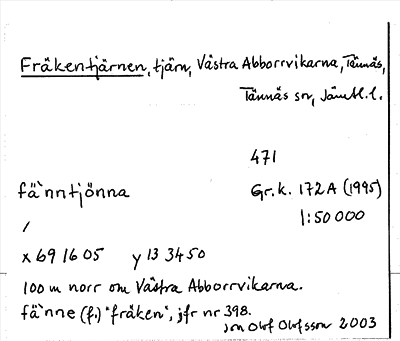 Fräkentjärnen, tjärn, Västra Abborrvikarna, Tännäs,
Tännäs sn, Jämtl. l.
471
fä`nntjönna
Gr.k. 172A (1995)
/
1:50 000
x 69 16 05 y 13 34 50
100 m norr om Västra Abborrvikarna.
fä`nne (f.) "fräken", jfr nr 398.
Jon Olof Olofsson 2003